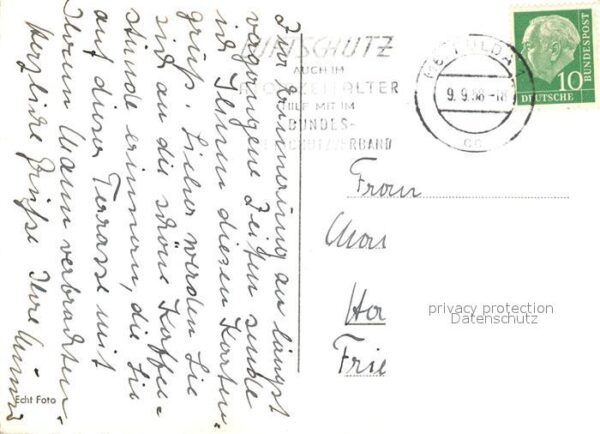 Zur Erinnerung an längst
vergangene Zeiten sende
ich Ihnen diesen Karten-
gruß. Sicher werden Sie
sich an die schöne Kaffee-
stunde erinnern, die Sie
auf dieser Terrasse mit
Ihrem Mann verbrachten.
Herzliche Grüße Ihre
Echt Foto
LUFTSCHUTZ
AUCH IM
ATOMZEITALTER
HILF MIT IM
BUNDES-
LUFTSCHUTZVERBAND
FULDA 1
9. 9. 58 -18
cc
DEUTSCHE
BUNDESPOST
10
Frau
Ha
Frie
privacy protection
Datenschutz